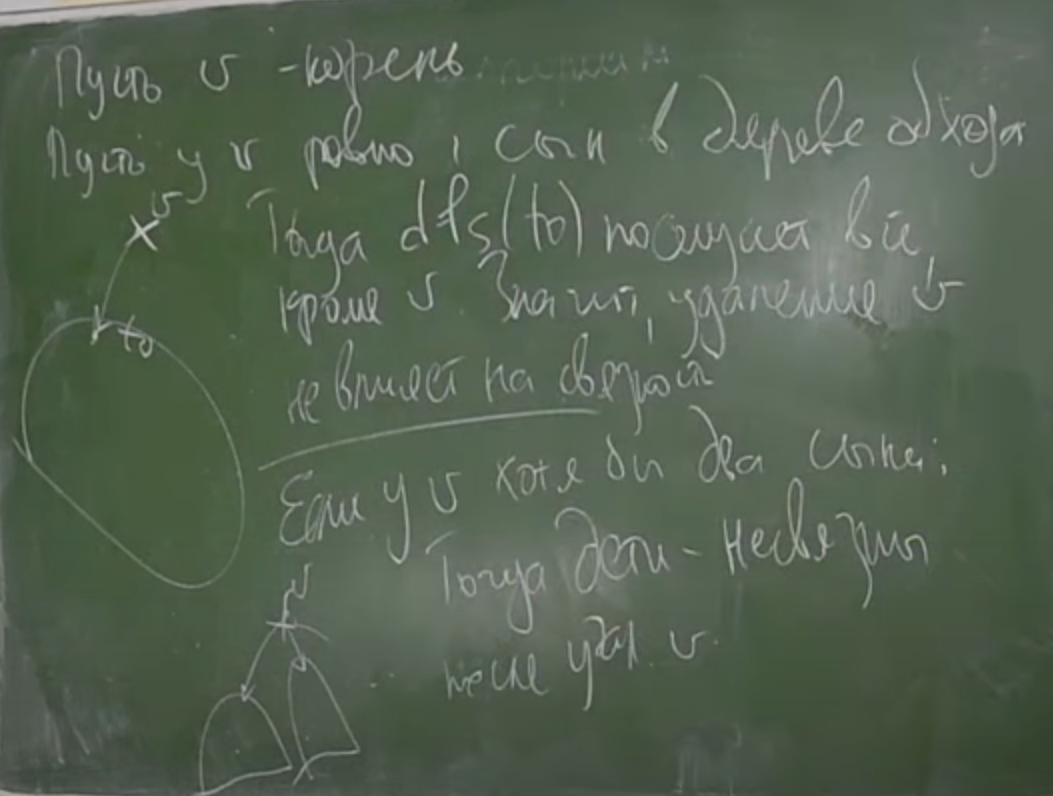 Пусть v - корень
Пусть у v ровно 1 сын в дереве обхода
v
Тогда dfs(to) посещает все,
кроме v Значит, удаление v
to
не влияет на связность
Если у v хотя бы два сына:
Тогда дети - несвязны
v
после удал. v.